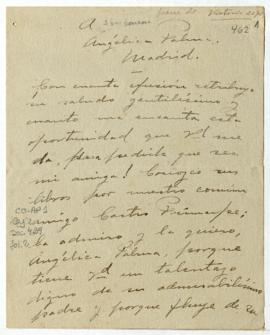 A
462
Angélica Palma.
Madrid.
Con cuanta efusión retribuyo
su saludo gentilísimo y
cuanto me encanta esta
oportunidad que Vd me
da, para pedirle que sea
mi amiga! Conozco sus
libros por nuestro común
amigo Castro
la admiro y la quiero,
Angélica Palma, porque
tiene Vd un talentazo
digno de su admirabilísimo
padre y porque fluye de su
CO-AP1
fol. 2